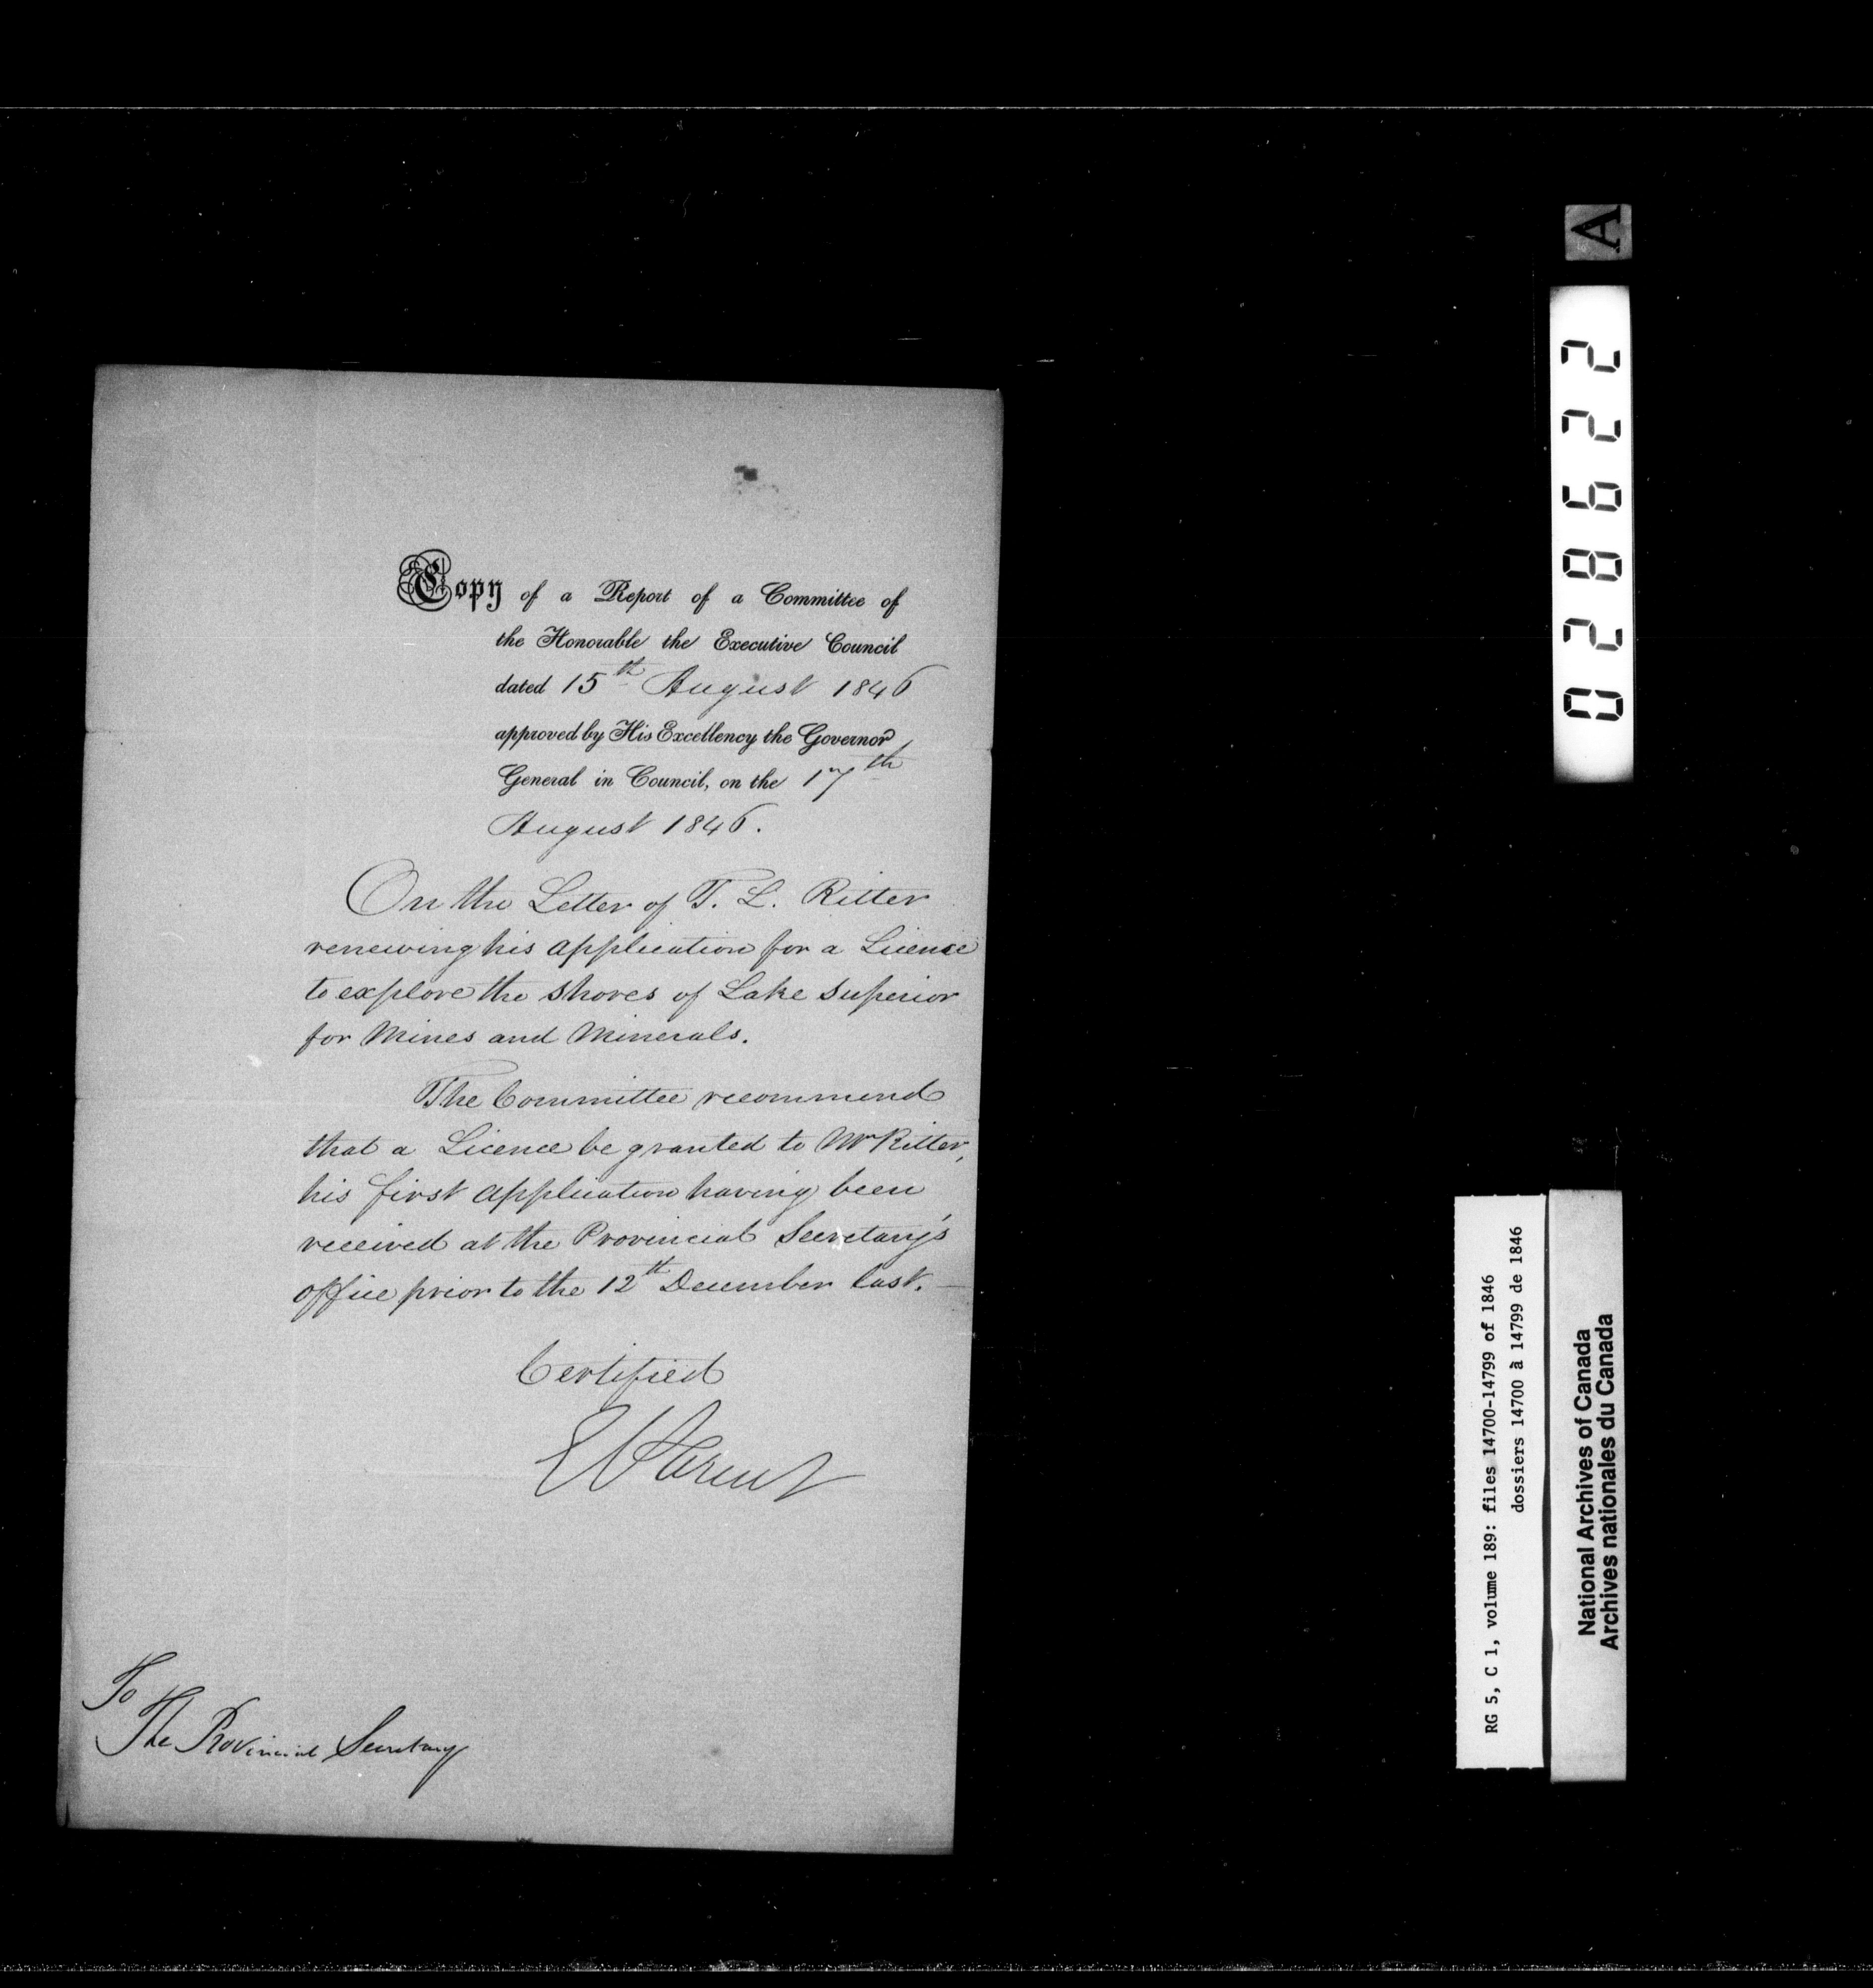 Copy of a Report of a Committee of
the Honorable the Executive Council
dated 15th August 1846
approved by His Excellency the Governor
General in Council, on the 17th
August 1846.
On the Letter of T. L. Ritter
renewing his application for a Licence
to explore the shores of Lake Superior
for Mines and Minerals.
The Committee recommend
that a Licence be granted to Mr Ritter,
his first application having been
received at the Provincial Secretary's
office prior to the 12th December last.
Certified
E Parent
To
The Provincial Secretary
A
028622
RG 5, C 1, volume 189: files 14700-14799 of 1846
dossiers 14700 à 14799 de 1846
National Archives of Canada
Archives nationales du Canada